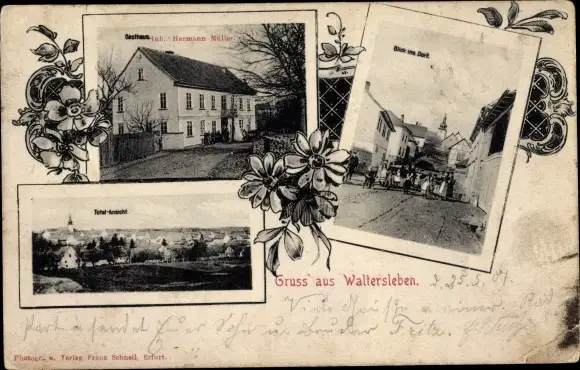 Gasthaus. Inh. Hermann Müller
Blick ins Dorf.
Total-Ansicht
Gruss aus Waltersleben.
d. 25.5.
Viele
sendet Euer Sohn u. Bruder Fritz.
Photogr. u. Verlag Franz Schnell, Erfurt.